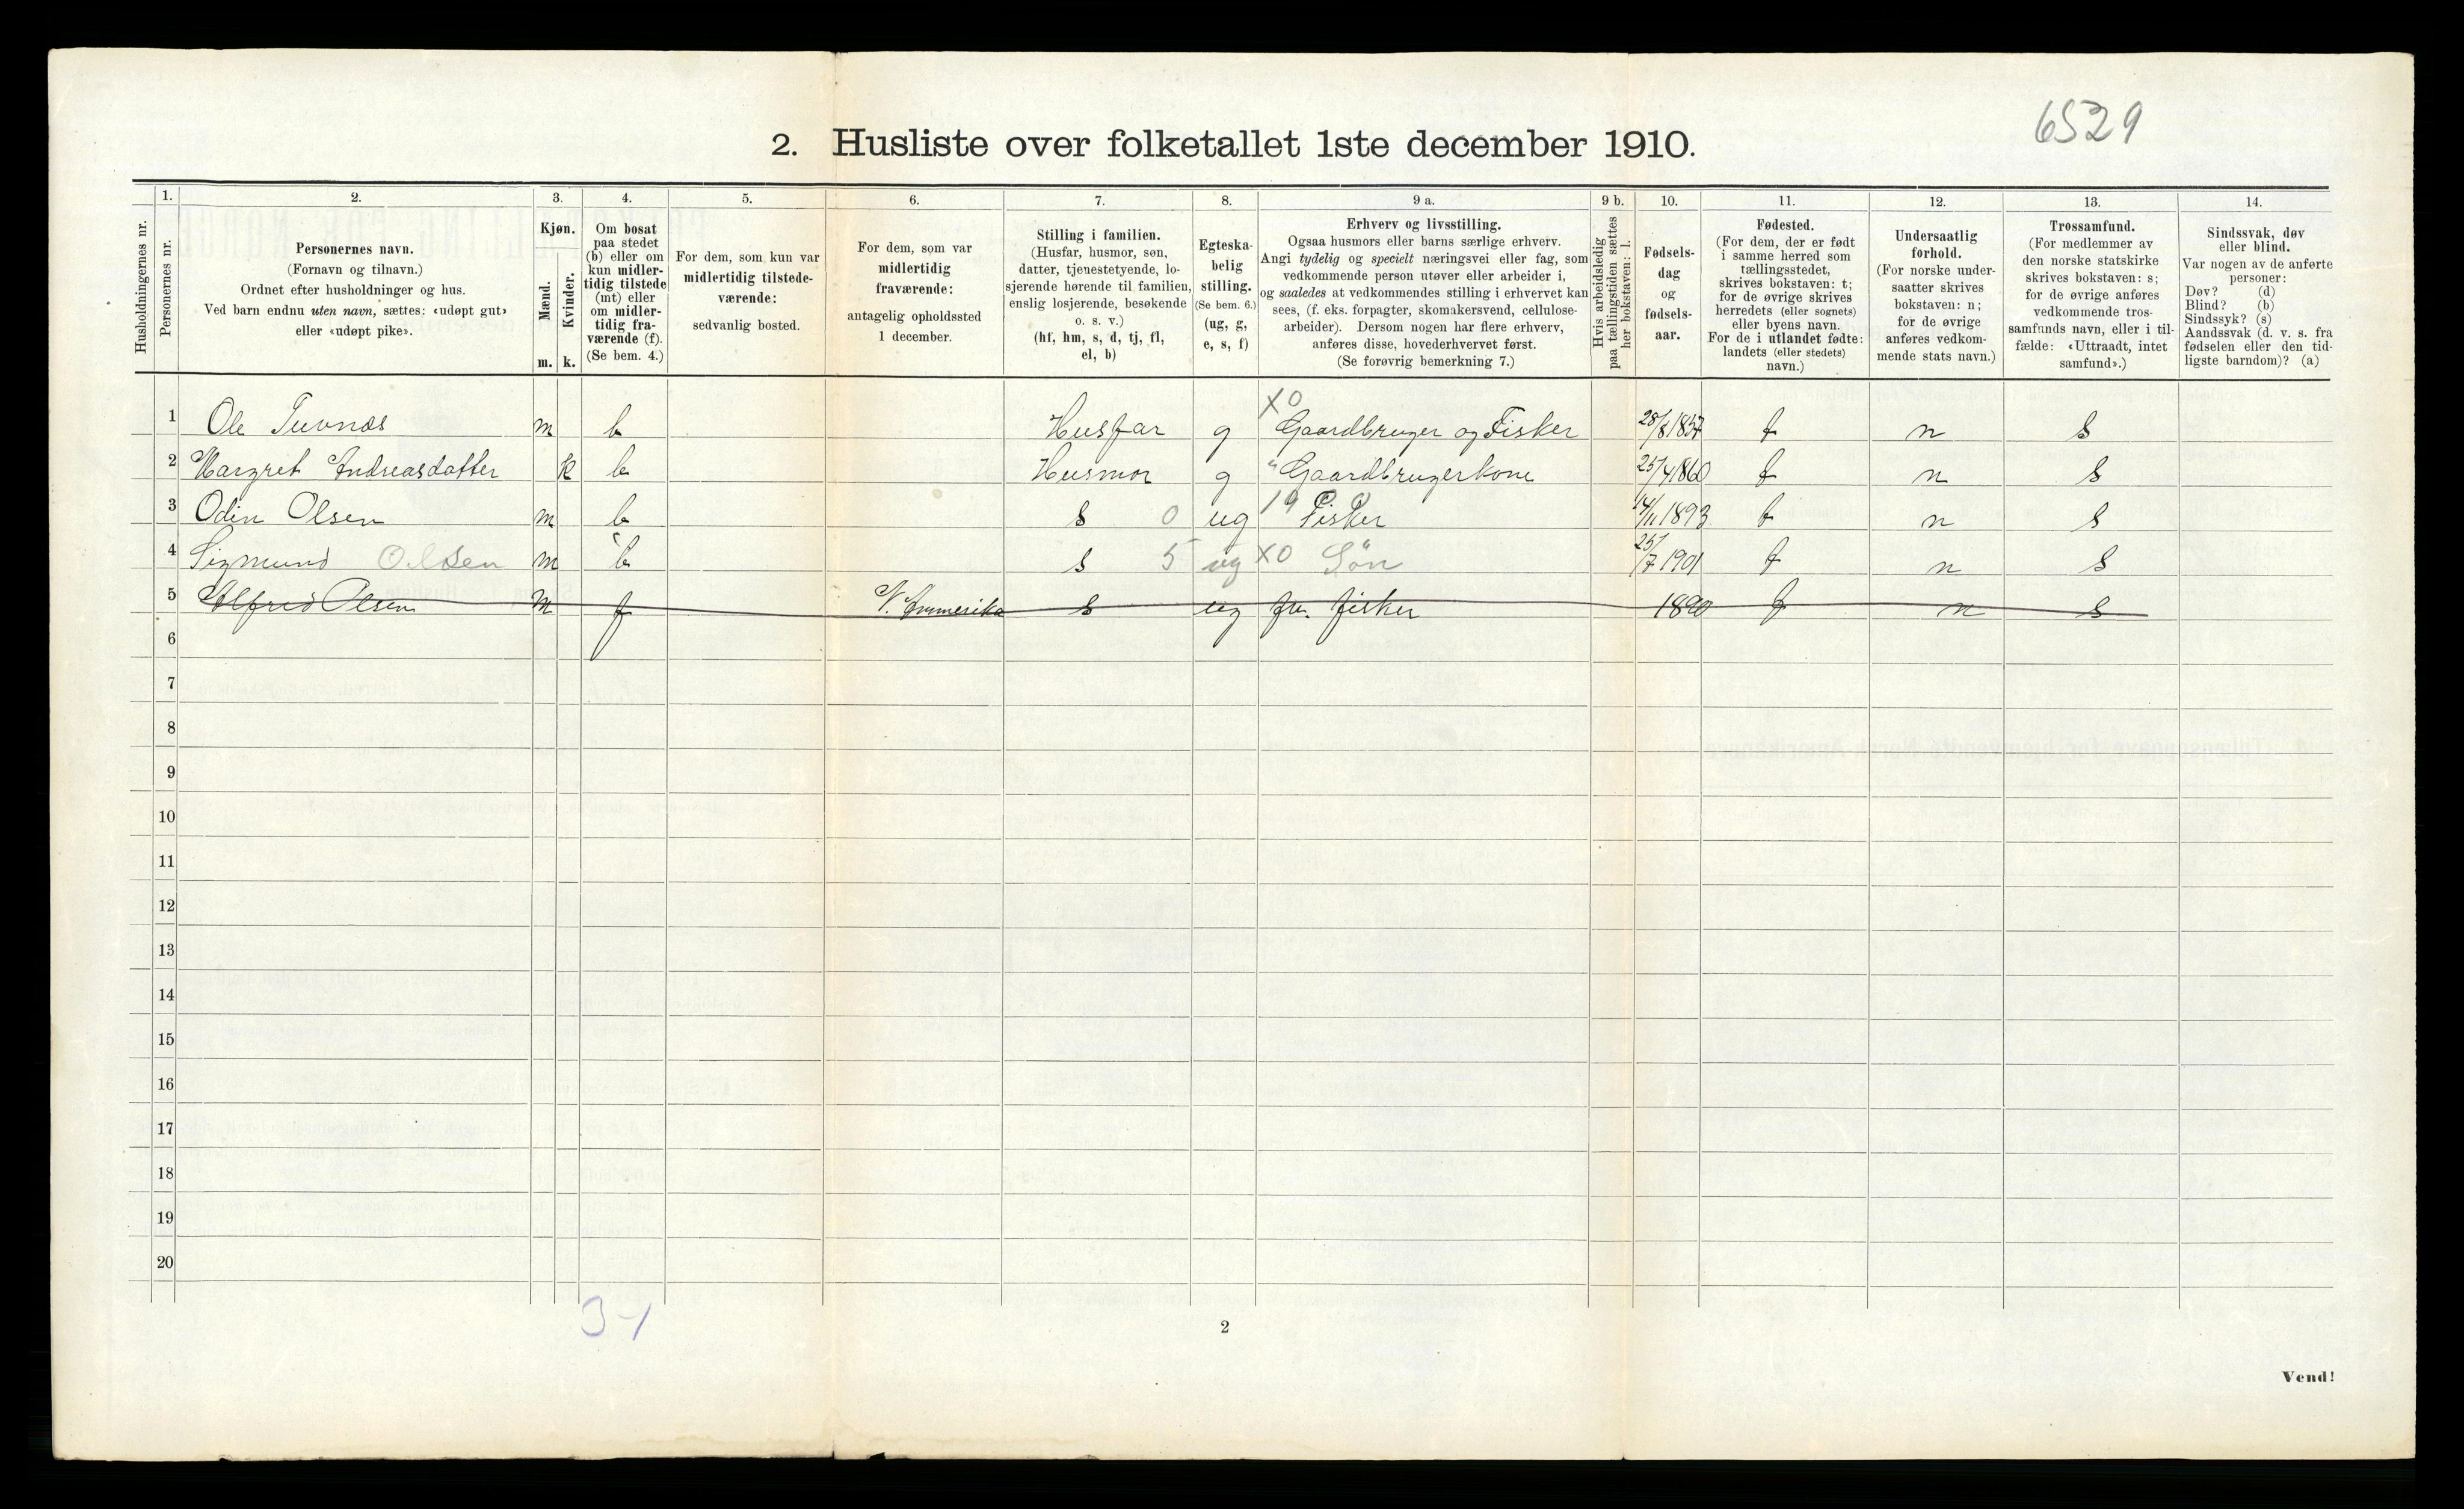 6529
2. Husliste over folketallet 1ste december 1910.
Husholdningernes nr.
1.
Personernes nr.
2.
Personernes navn.
(Fornavn og tilnavn.)
Ordnet efter husholdninger og hus.
Ved barn endnu uten navn, sættes: «udøpt gut»
eller «udøpt pike».
3.
Kjøn.
Mænd.
m.
Kvinder.
k.
4.
Om bosat
paa stedet
(b) eller om
kun midler-
tidig tilstede
(mt) eller
om midler-
tidig fra-
værende (f).
(Se bem. 4.)
5.
For dem, som kun var
midlertidig tilstede-
værende:
sedvanlig bosted.
6.
For dem, som var
midlertidig
fraværende:
antagelig opholdssted
1 december.
7.
Stilling i familien.
(Husfar, husmor, søn,
datter, tjenestetyende, lo-
sjerende hørende til familien,
enslig losjerende, besøkende
o. s. v.)
(hf, hm, s, d, tj, fl,
el, b)
8.
Egteska-
belig
stilling.
(Se bem. 6.)
(ug, g,
e, s, f)
9 a.
Erhverv og livsstilling.
Ogsaa husmors eller barns særlige erhverv.
Angi tydelig og specielt næringsvei eller fag, som
vedkommende person utøver eller arbeider i,
og saaledes at vedkommendes stilling i erhvervet kan
sees, (f. eks. forpagter, skomakersvend, cellulose-
arbeider). Dersom nogen har flere erhverv,
anføres disse, hovederhvervet først.
(Se forøvrig bemerkning 7.)
9 b.
Hvis arbeidsledig
paa tællingstiden sættes
her bokstaven: l.
10.
Fødsels-
dag
og
fødsels-
aar.
11.
Fødested.
(For dem, der er født
i samme herred som
tællingsstedet,
skrives bokstaven: t;
for de øvrige skrives
herredets (eller sognets)
eller byens navn.
For de i utlandet fødte:
landets (eller stedets)
navn.)
12.
Undersaatlig
forhold.
(For norske under-
saatter skrives
bokstaven: n;
for de øvrige
anføres vedkom-
mende stats navn.)
13.
Trossamfund.
(For medlemmer av
den norske statskirke
skrives bokstaven: s;
for de øvrige anføres
vedkommende tros-
samfunds navn, eller i til-
fælde: «Uttraadt, intet
samfund».)
14.
Sindssvak, døv
eller blind.
Var nogen av de anførte
personer:
Døv? (d)
Blind? (b)
Sindssyk? (s)
Aandssvak (d. v. s. fra
fødselen eller den tid-
ligste barndom)? (a)
1 Ole Tuvnæs m b Husfar g X0 Gaardbruger og Fisker 28/8 1857 t n s
2 Margret Andreasdatter k b Husmor g " Gaardbrugerkone 25/4 1860 t n s
3 Odin Olsen m b s 0 ug 19 Fisker 14/11 1893 t n s
4 Sigmund Olsen m b s 5 ug X0 Søn 25/7 1901 t n s
5 Alfred Olsen m f N. Ammerika s ug fr. fisker 1890 t n s
6
7
8
9
10
11
12
13
14
15
16
17
18
19
20
3-1
2
Vend!